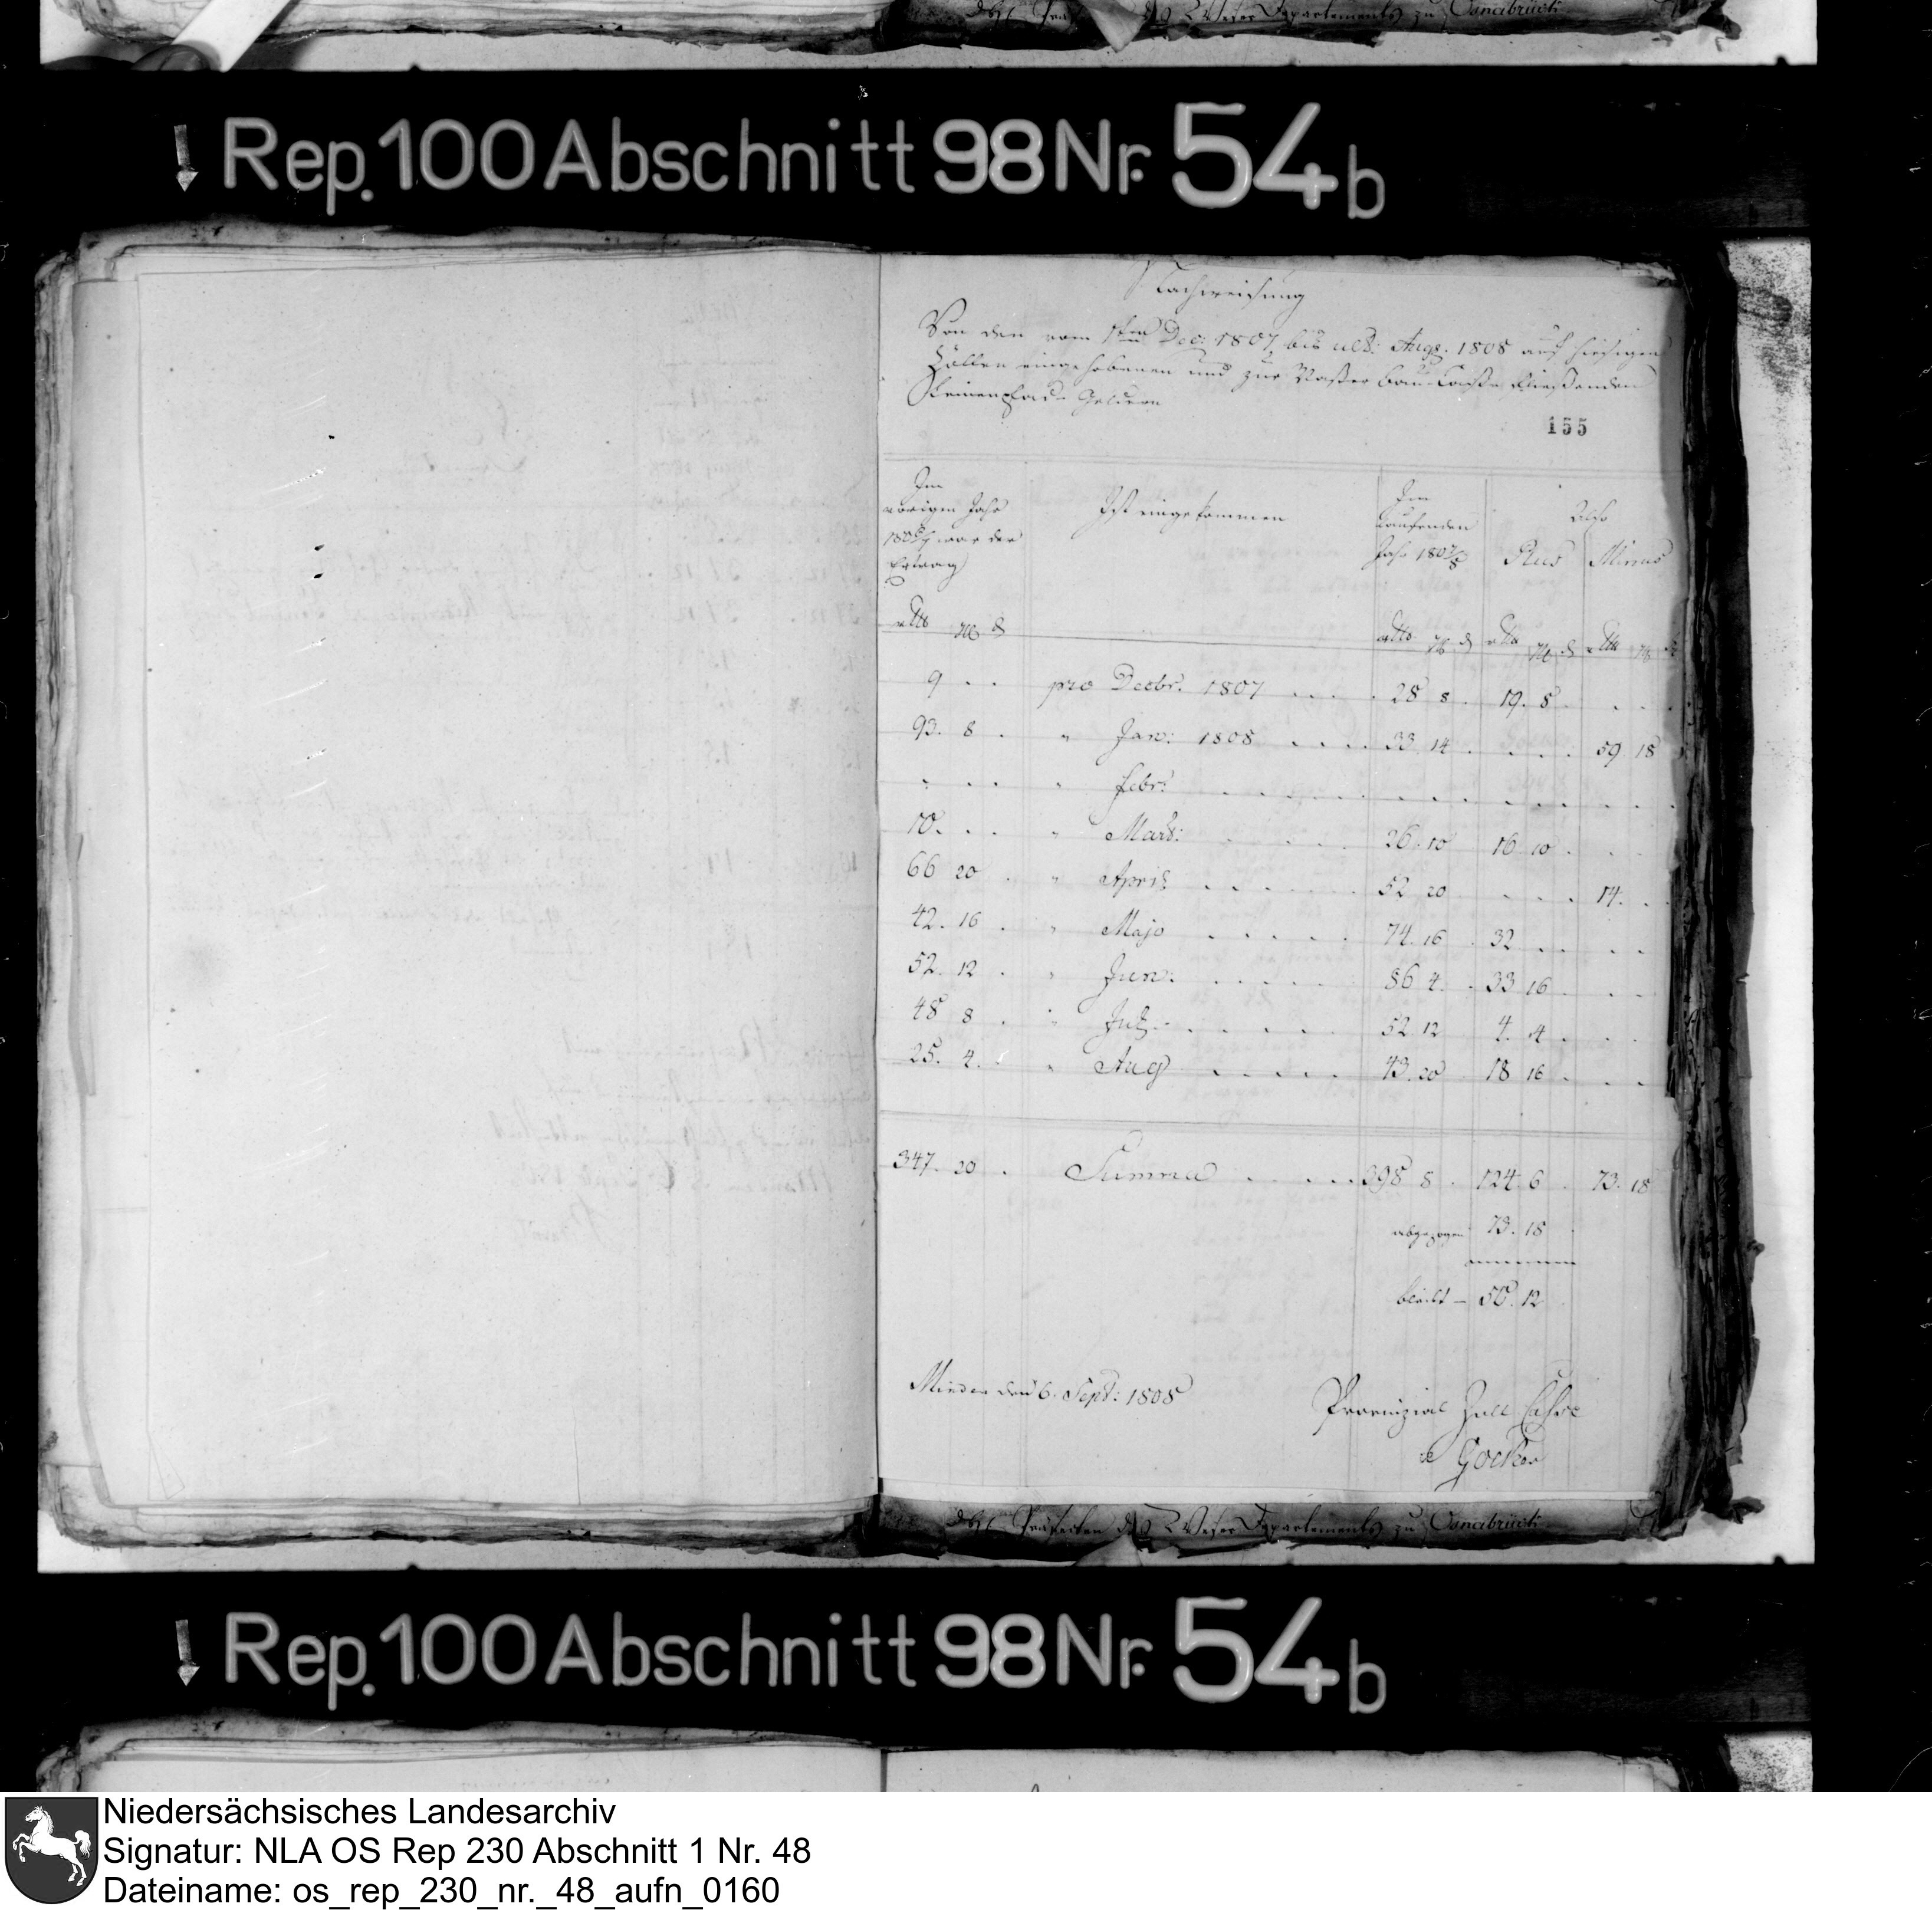 Rep. 100 Abschnitt 98 Nr. 54 b
Nachweisung
Von den vom 1ten Dec: 1807 bis ult: Aug. 1808 auf hiesigen
Zöllen eingehobenen und zur Wasser bau-Casse fließenden
Leinenpfad-Geldern
155
Im vorigen Jahr 1806/7 war der Ertrag
Ist eingekommen
Im laufenden Jahr 1807/8
Also
Plus Minus
9 . . pro Decbr. 1807 . . . . 28 8 . 19. 8 . . . .
93. 8 . " Jan: 1808 . . . . 33 14 . . . . 59 18
" . . " Febr: . . . . . . . . . . . .
10. . . " Mart: . . . . 26. 10 16 10 . . .
66 20 . " April . . . . 52 20 . . . 14. . .
42. 16 . " Majo . . . . 74. 16 . 32 . . . .
52. 12 . " Jun: . . . . 86 4 . . 33 16 . . .
48 8 . " Jul: . . . . 52 12 4. 4 . . .
25. 4. . " Aug . . . . 43. 20 18 16 . . .
347. 20 . Summa . . . . 398 8 . 124. 6 . 73. 18
abgezogen 73. 18
bleibt — 50. 12
Minden den 6. Sept: 1808
Provinzial Zoll Casse
Präfecten des Weser Departements zu Osnabrück
Rep. 100 Abschnitt 98 Nr. 54 b
Niedersächsisches Landesarchiv
Signatur: NLA OS Rep 230 Abschnitt 1 Nr. 48
Dateiname: os_rep_230_nr._48_aufn_0160